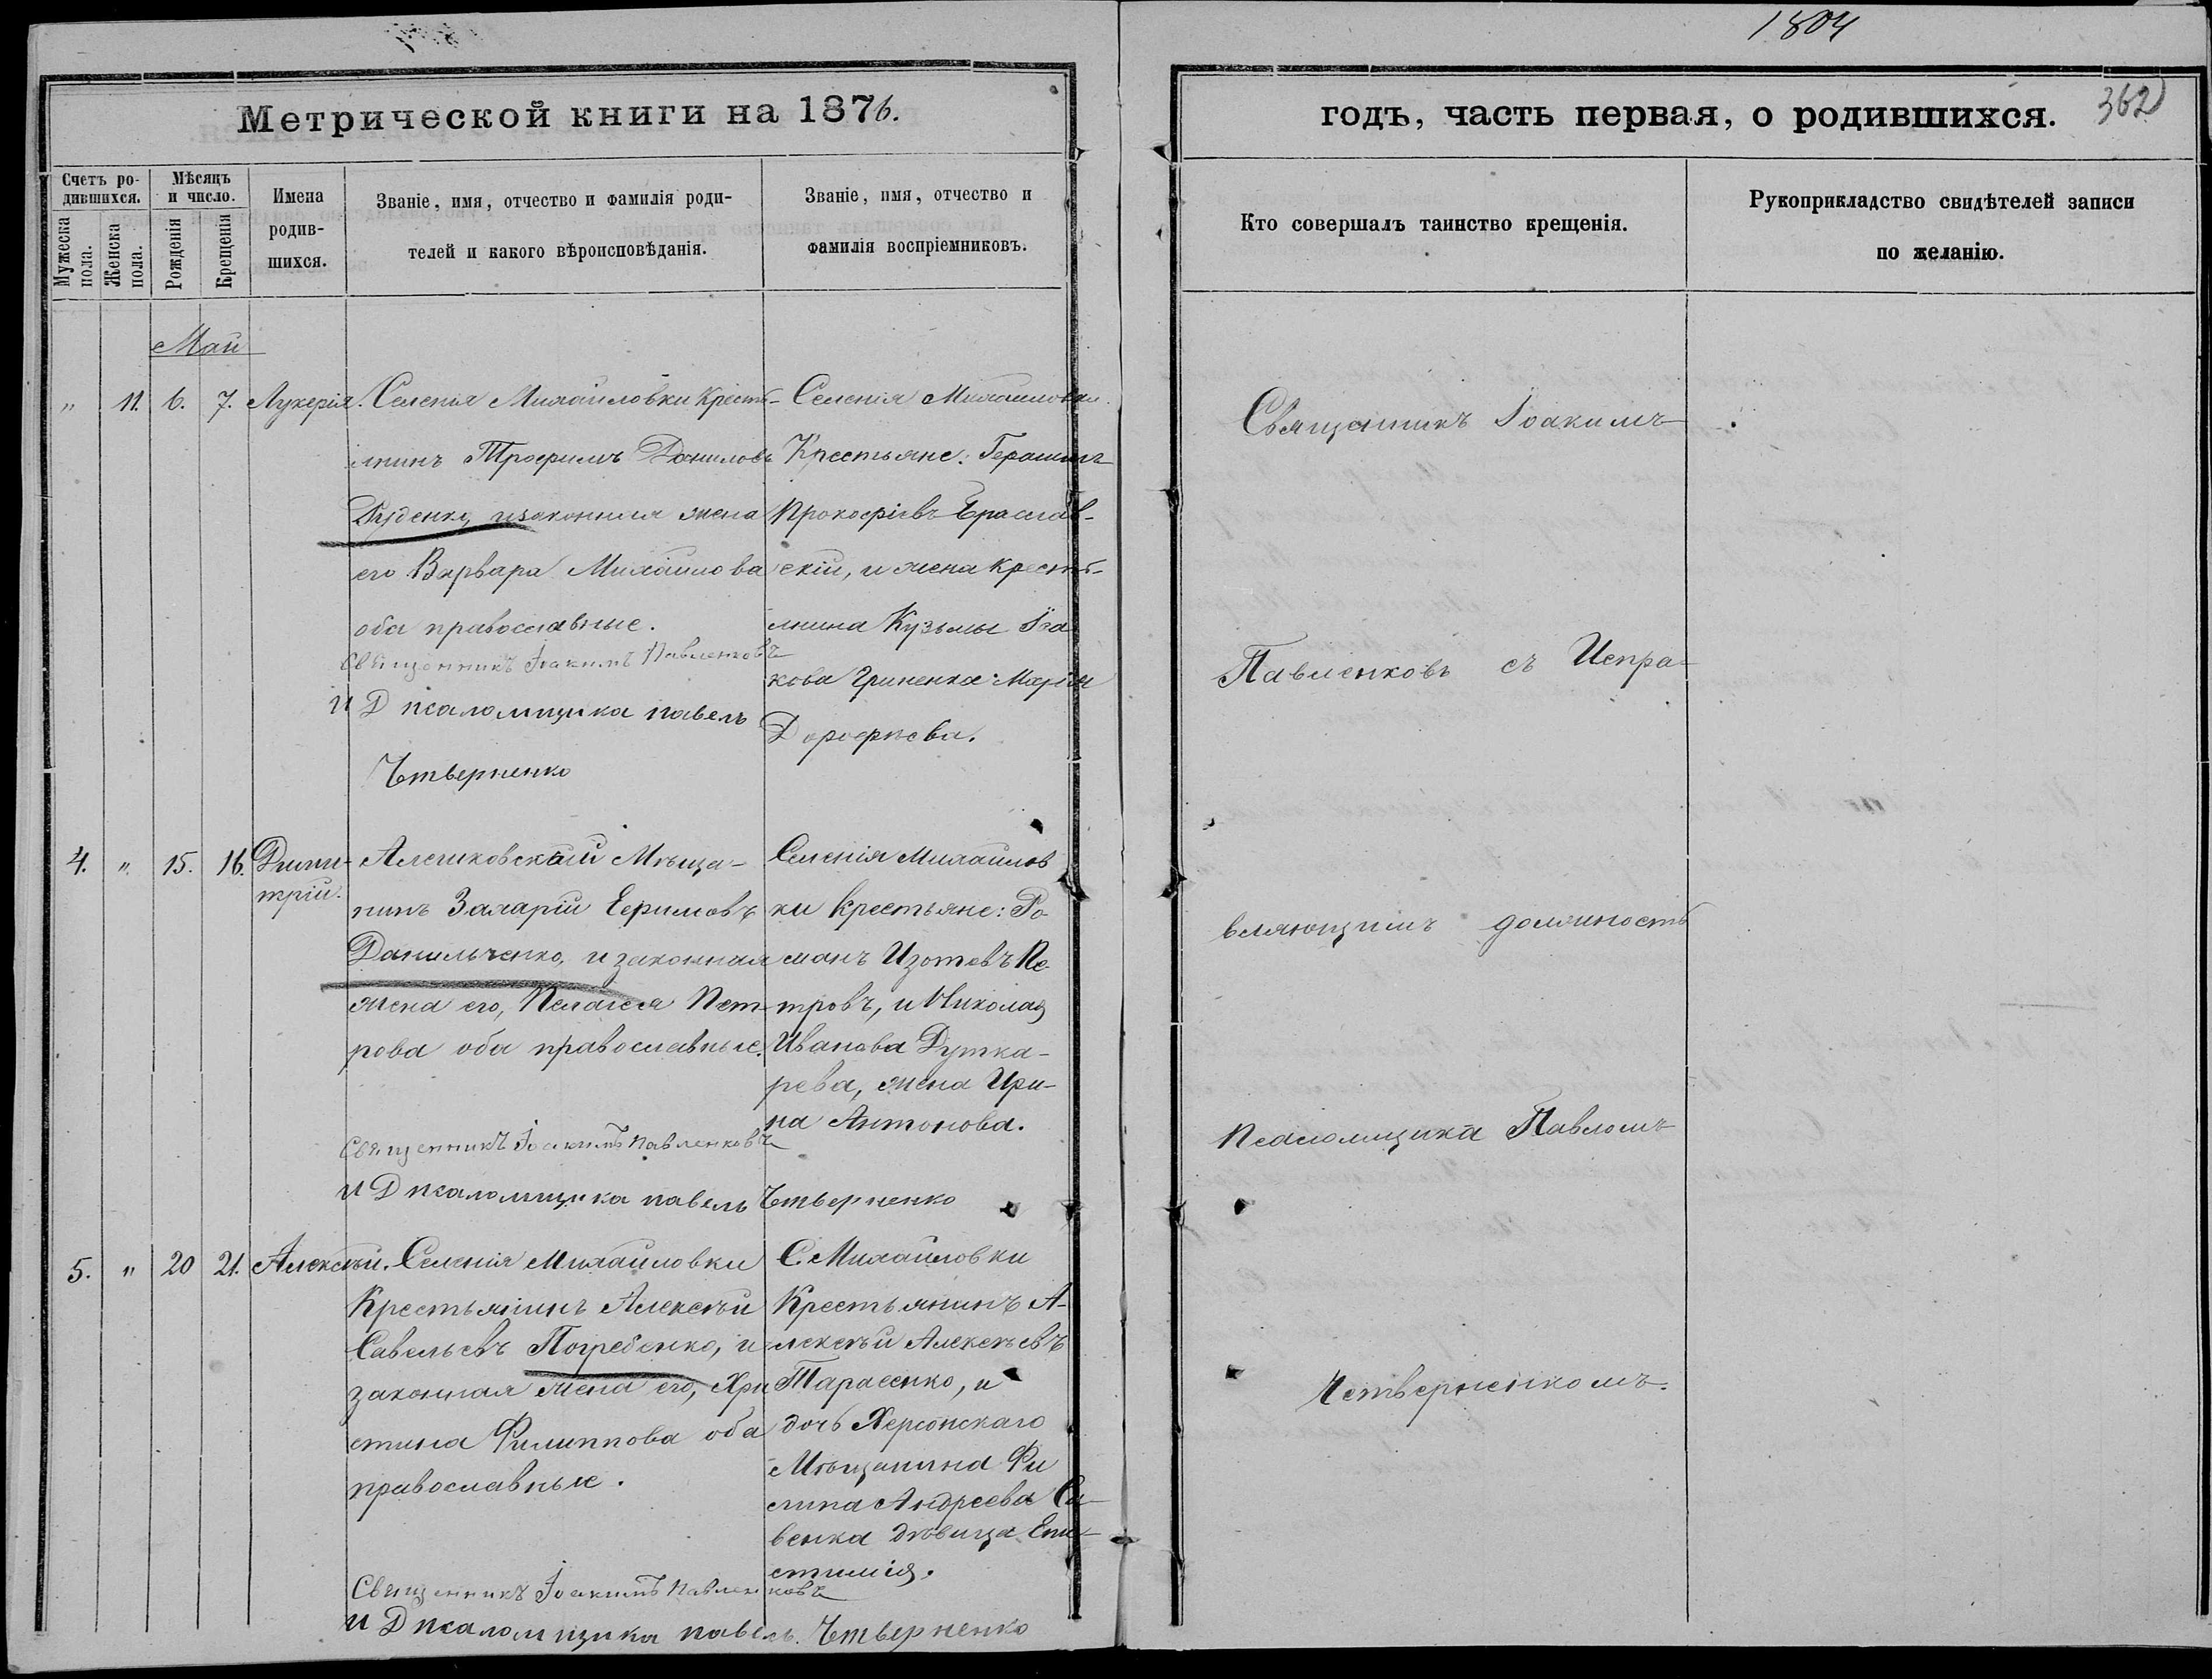 1804
Метрической книги на 1876.
годъ, часть первая, о родившихся.
362
Счетъ ро-
дившихся.
Мужеска
пола.
Женска
пола.
Мѣсяцъ
и число.
Рожденія
Крещенія
Имена
родив-
шихся.
Званіе, имя, отчество и фамилія роди-
телей и какого вѣроисповѣданія.
Званіе, имя, отчество и
фамилія воспріемниковъ.
Кто совершалъ таинство крещенія.
Рукоприкладство свидѣтелей записи
по желанію.
Май
" 11. 6. 7. Лукерія.
Селенія Михайловки Кресть-
янинъ Трофимъ Даниловъ
Руденко, изаконная жена
его Варвара Михайлова
оба православные.
Священникъ Іоакимъ Павленковъ
И Д псаломщика павелъ
Четверненко
Селенія Михаиловки
Крестьяне: Герасимъ
Прокофіевъ Ераслав-
скій, и жена кресть-
янина Кузьмы Іа
кова Гриненка Марія
Дорофѣева.
4. " 15. 16. Дими-
трій.
Алешковскій Мѣща-
нинъ Захарій Ефимовъ
Данильченко, и законная
жена его, Пелагея Пет-
рова оба православные.
Священникъ Іоакимъ Павленковъ
И Д псаломщика павелъ Четверненко
Селенія Михайлов
ки крестьяне: Ро-
манъ Изотовъ Пе-
тровъ, и Николая
Иванова Дутка-
рева, жена Ири-
на Антонова.
5. " 20 21. Алексѣй.
Селенія Михайловки
Крестьянинъ Алексѣй
Савельевъ Погребенко, и
законная жена его, Хри
стина Филиппова оба
православные.
Священникъ Іоакимъ Павленковъ
И Д псаломщика павелъ. Четверненко
С Михайловки
Крестьянинъ А-
лексѣй Алексѣевъ
Тарасенко, и
дочь Херсонскаго
Мѣщанина Фи
липа Андреева Са-
венка дѣвица Епи-
стимія.
Священникъ Іоакимъ
Павленковъ съ Испра-
вляющимъ должность
Псаломщика Павломъ
Четверненкомъ.